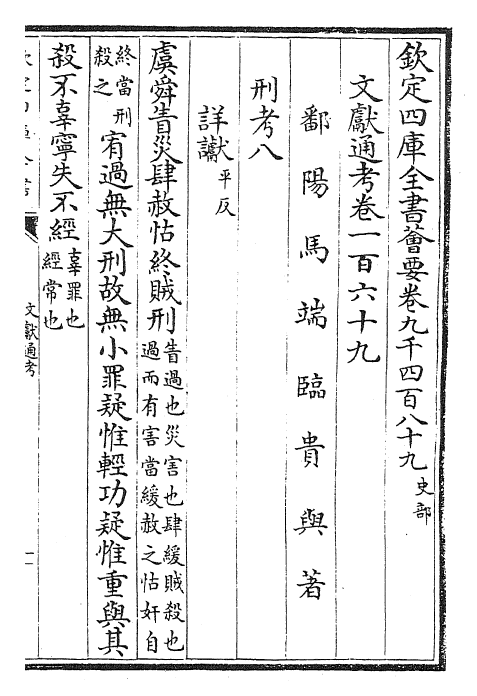 欽定四庫全書薈要卷九千四百八十九史部
文獻通考卷一百六十九
鄱陽馬端臨貴與著
刑考八
詳讞平反
虞舜眚災肆赦怙終賊刑眚過也災害也肆緩賊殺也過而有害當緩赦之怙奸自
終當刑殺之宥過無大刑故無小罪疑惟輕功疑惟重與其
殺不辜寧失不經辜罪也經常也
文獻通考
一